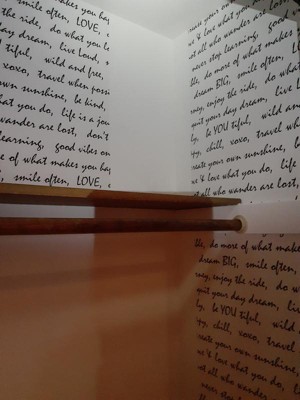 smile often, LOVE,
the ride, do what you lo
day dream, live Loud,
tiful, wild and free,
xoxo, travel when possi
sunshine, be kind,
hat you do, life is a jou
wander are lost, don't
learning, good vibes on
e of what makes you hap
smile often, LOVE,
your own sun
we & love what you
at all who wander are los
never stop learning, good
do more of what makes
dream BIG, smile often,
ney, enjoy the ride, do w
quit your day dream, live L
ly, be YOU tiful, wild and
py, chill, xoxo, travel whe
create your own sunshine, b
we & love what you do, li
at all who wander are lost,
do more of what make
dream BIG, smile often,
ney, enjoy the ride, do
quit your day dream, live
ly, be YOU tiful, wild
py, chill, xoxo, travel
create your own sunshine,
we & love what you do
at all who wander are
never stop learning